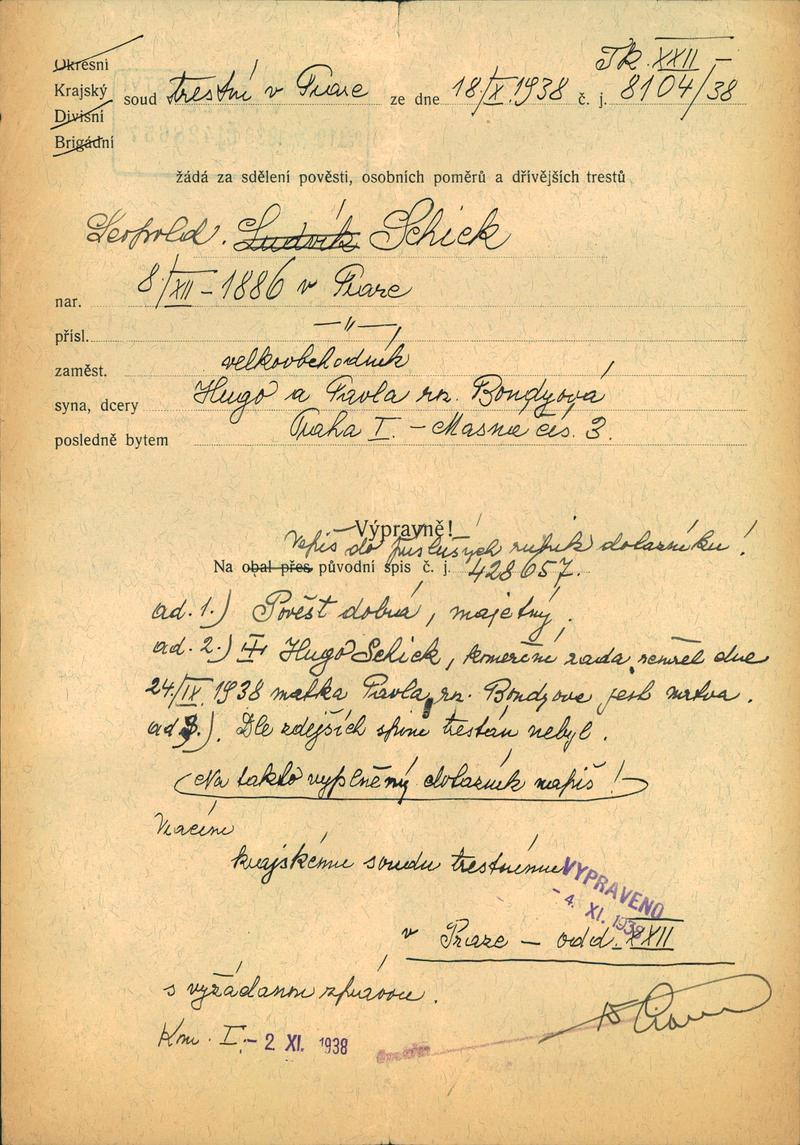 Tk. XXII
Okresní
Krajský
Divisní
Brigádní
soud trestní v Praze ze dne 18/X.1938 č. j. 8104/38
žádá za sdělení pověsti, osobních poměrů a dřívějších trestů
Leopold. Ludvík Schick
nar. 8/XII - 1886 v Praze
přísl. — „ —
zaměst. velkoobchodník
syna, dcery Hugo a Pavla roz. Bondyová
posledně bytem Praha I. - Masná čís. 3.
Výpravně!
Vepiš do příslušných rubrik dotazníku!
Na obal přes původní spis č. j. 428657.
ad. 1.) Pověst dobrá, majetný.
ad. 2.) Hugo Schick, komerční rada, zemřel dne
24/IX. 1938 matka Pavla, roz. Bondyova jest mrtva.
ad 3.). Dle zdejších spisů trestán nebyl.
(Na takto vyplněný dotazník napiš!)
Vracím
krajskému soudu trestnímu
VYPRAVENO
- 4. XI. 1938
v Praze — odd. XXII
s vyžádanou zprávou.
Kom. I. - 2 XI. 1938